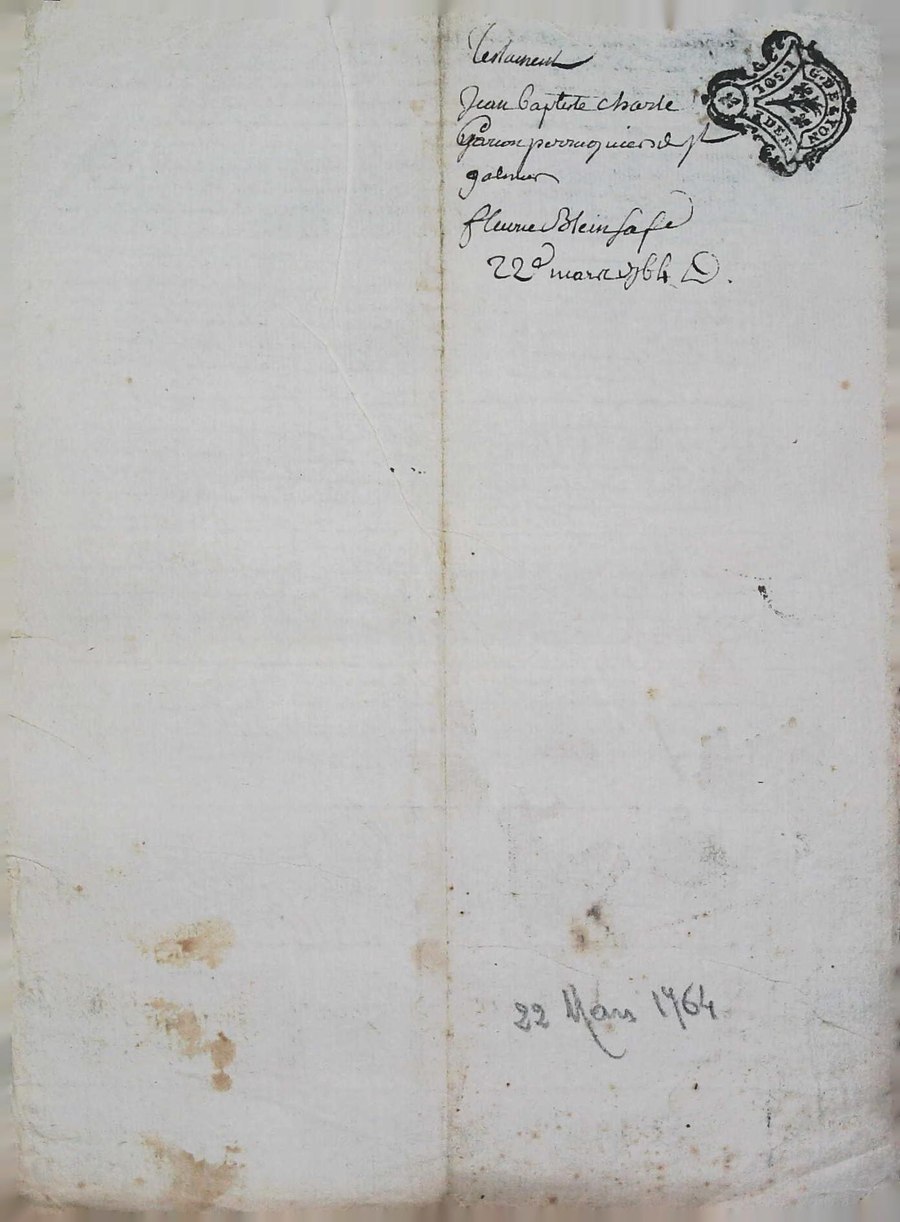 Testament
Jean baptiste charle
Garcon perruquier de st
galmier
fleurie Blein sa fe
22e mars 1764
G. DE LYON
10S. 1
DEN.
22 Mars 1764